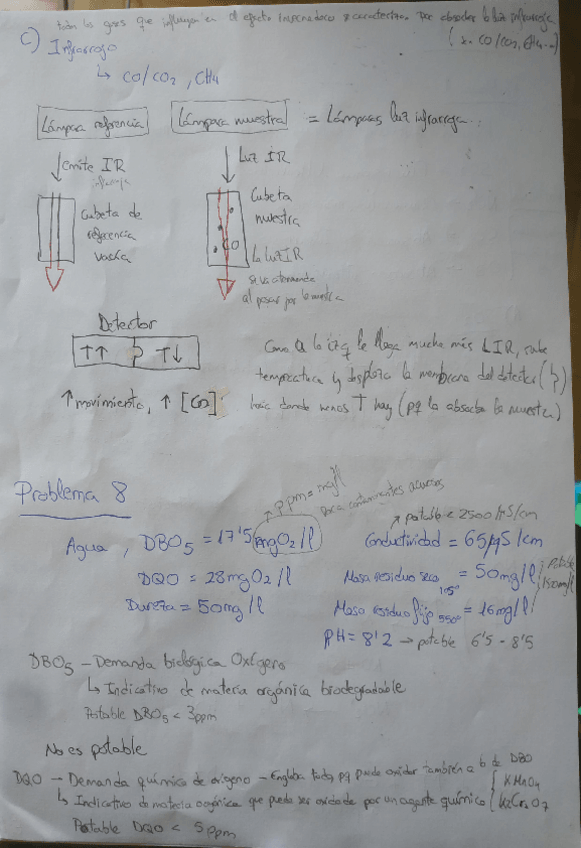 todos los gases que influyen en el efecto invernadero se caracterizan por absorber la luz infrarroja
(ej. CO/CO2, CH4...)
C) Infrarrojo
↳ CO/CO2, CH4
Lámpara referencia
Lámpara muestra
= Lámparas luz infrarroja.
↓ emite IR
infrarroja
↓ Luz IR
Cubeta de
referencia
vacía
Cubeta
muestra
CO
La luz IR
se va atenuando
al pasar por la muestra
Detector
↑↑ T↓
↑ movimiento, ↑ [CO].
Como a la izq le llega mucha más LIR, sube
temperatura y desplaza la membrana del detector
hacia donde menos T hay (pq la absorbe la muestra)
Problema 8
ppm = mg/l
para contaminantes acuosos
Agua, DBO5 = 17'5 mgO2/l
DQO = 28mgO2/l
Dureza = 50mg/l
potable = 2500 µS/cm
Conductividad = 65µS/cm
Masa residuo seco 105° = 50mg/l
Potable
1500mg/l
Masa residuo fijo 550° = 16mg/l
PH = 8'2 → potable 6'5 - 8'5
DBO5 - Demanda biológica Oxígeno
↳ Indicativo de materia orgánica biodegradable
Potable DBO5 < 3ppm
No es potable
DQO - Demanda química de oxígeno - Engloba todo, pq puede oxidar también a b de DBO
↳ Indicativo de materia orgánica que puede ser oxidada por un agente químico
KMnO4
K2Cr2O7
Potable DQO < 5ppm